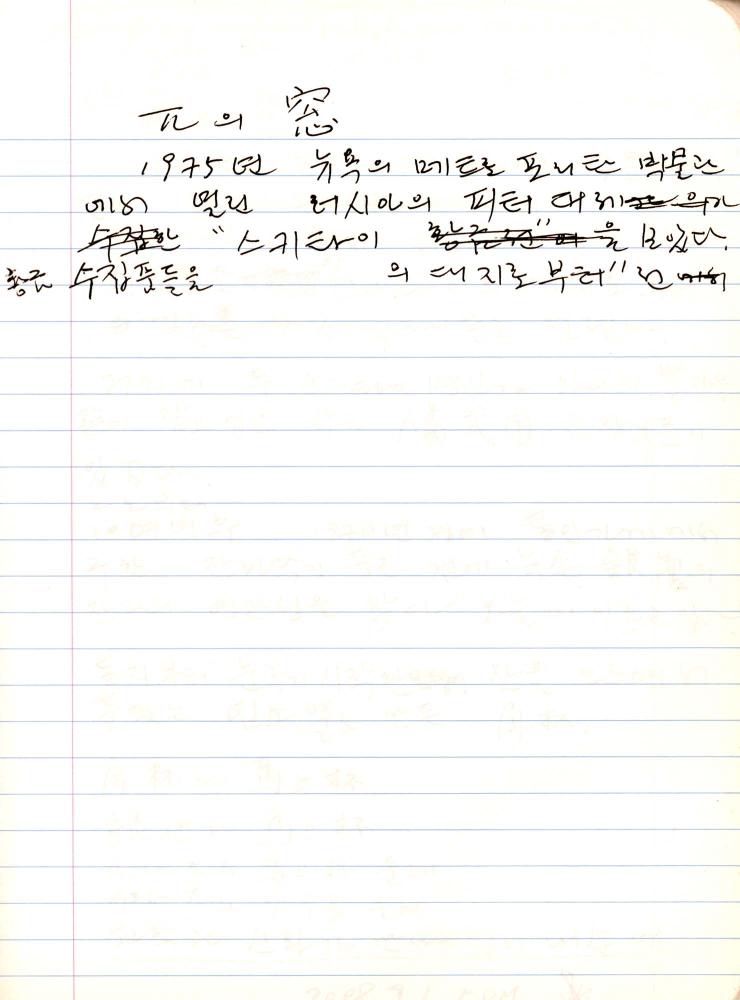 ㅠ의 窓
1975년 뉴욕의 메트로포리탄 박물관
에서 열린 러시아의 피터 대제
수집한 "스키타이 황금전"에 을 보았다.
황금 수집품들을 의 대지로부터" 전